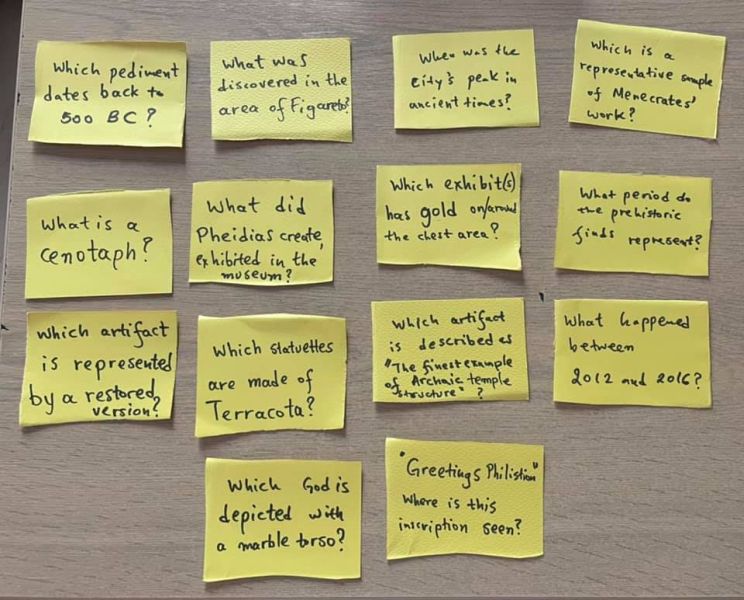 Which pediment
dates back to
500 BC?
What was
discovered in the
area of Figareto?
When was the
city's peak in
ancient times?
Which is a
representative sample
of Menecrates'
work?
What is a
cenotaph?
What did
Pheidias create,
exhibited in the
museum?
Which exhibit(s)
has gold on/around
the chest area?
What period do
the prehistoric
finds represent?
Which artifact
is represented
by a restored
version?
Which statuettes
are made of
Terracota?
Which artifact
is described as
"The finest example
of Archaic temple
structure"?
What happened
between
2012 and 2016?
Which God is
depicted with
a marble torso?
"Greetings Philistion"
Where is this
inscription seen?